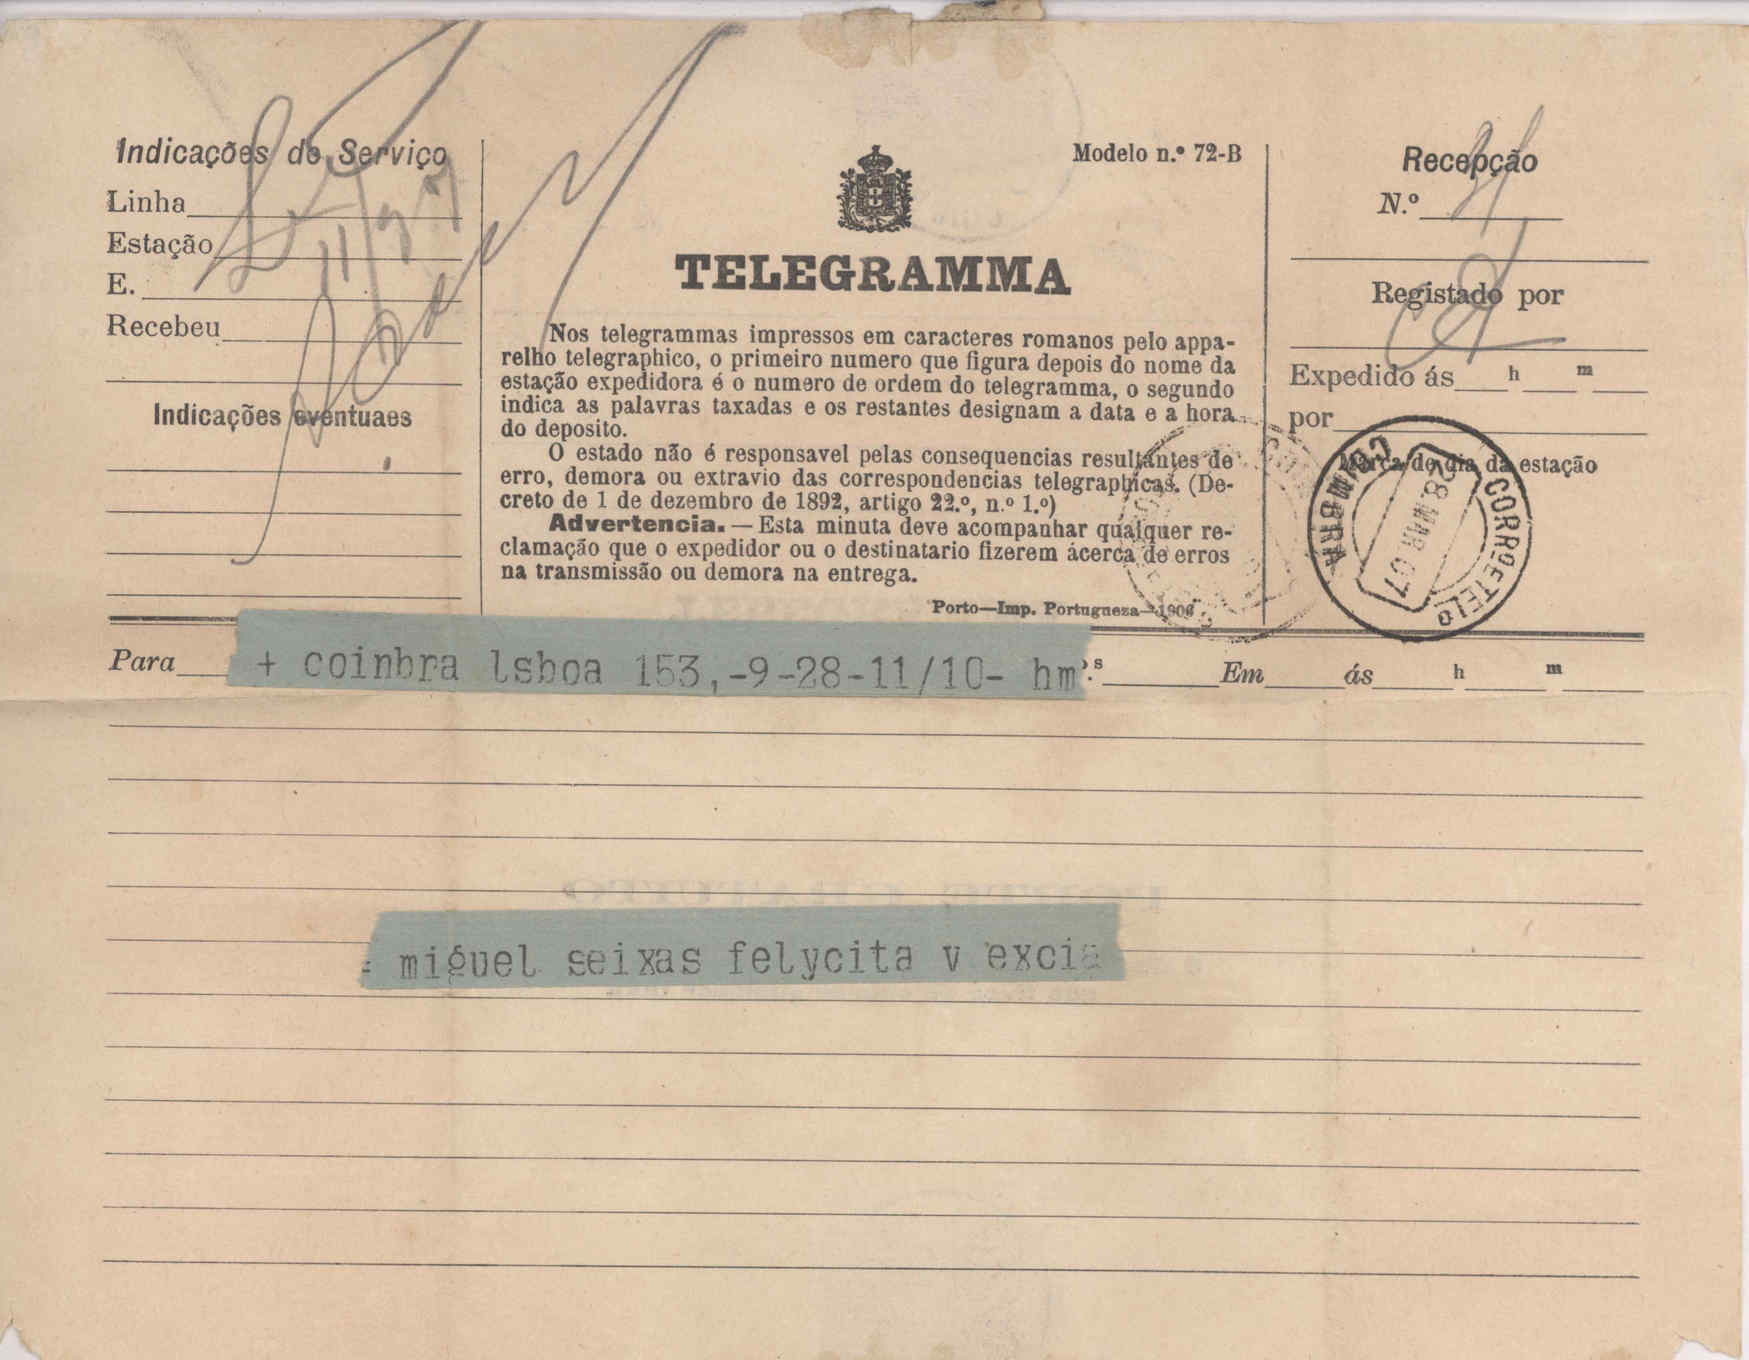 Indicações de Serviço
Linha
Estação
E.
Recebeu
Indicações eventuaes
Modelo n.º 72-B
TELEGRAMMA
Nos telegrammas impressos em caracteres romanos pelo appa-
relho telegraphico, o primeiro numero que figura depois do nome da
estação expedidora é o numero de ordem do telegramma, o segundo
indica as palavras taxadas e os restantes designam a data e a hora
do deposito.
O estado não é responsavel pelas consequencias resultantes de
erro, demora ou extravio das correspondencias telegraphicas. (De-
creto de 1 de dezembro de 1892, artigo 22.º, n.º 1.º)
Advertencia. — Esta minuta deve acompanhar qualquer re-
clamação que o expedidor ou o destinatario fizerem ácerca de erros
na transmissão ou demora na entrega.
Porto—Imp. Portugueza—1906
Recepção
N.º
Registado por
Expedido ás h m
por
Marca de dia da estação
COIMBRA
CORRº E TELº
28 MAR 07
Para
+ coinbra lsboa 153,-9-28-11/10- hm
Em ás h m
= miguel seixas felycita v excia